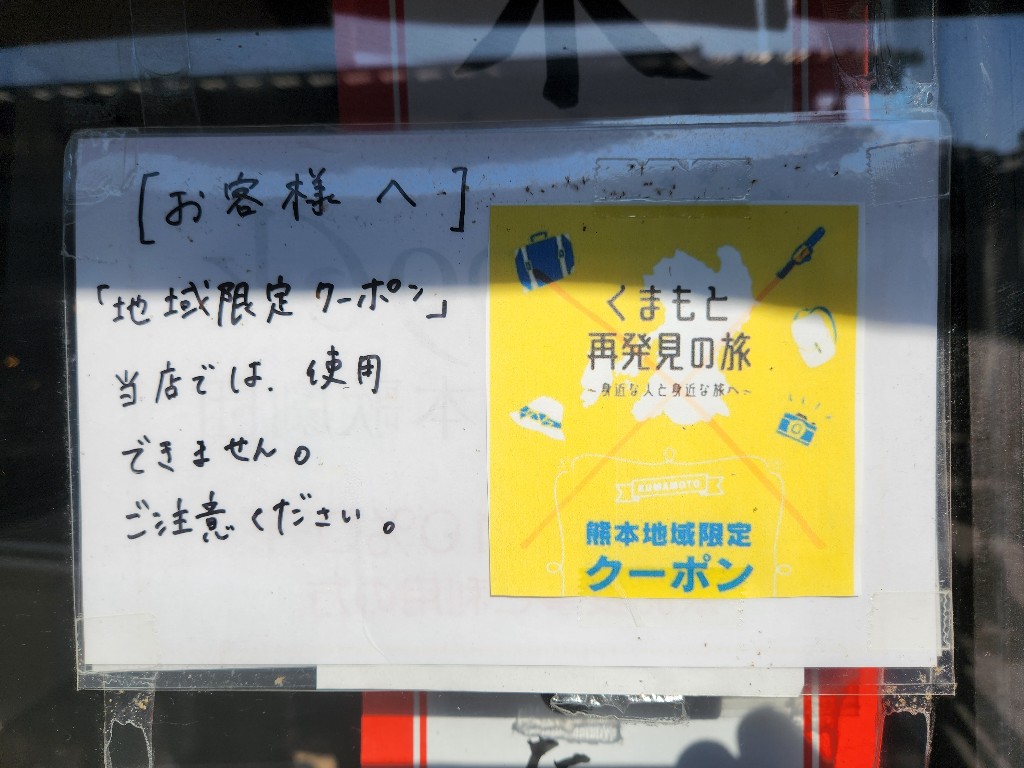 [お客様へ]
「地域限定クーポン」
当店では、使用
できません。
ご注意ください。
くまもと
再発見の旅
～身近な人と身近な旅へ～
KUMAMOTO
熊本地域限定
クーポン